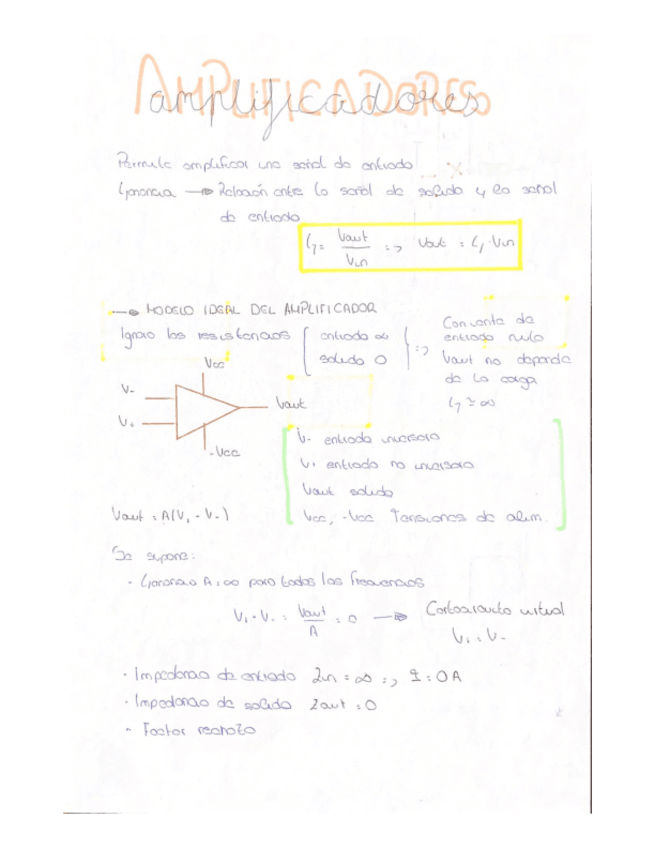 AMPLIFICADORES
amplificadores
Permite amplificar una señal de entrada
Ganancia → Relación entre la señal de salida y la señal
de entrada
G = Vout / Vin => Vout = G · Vin
→ MODELO IDEAL DEL AMPLIFICADOR
Ignoro las resistencias { entrada ∞ salida 0 } =>
Corriente de
entrada nula
Vout no depende
de la carga
G ≃ ∞
Vcc
V-
V+
Vout
-Vcc
V- entrada inversora
V+ entrada no inversora
Vout salida
Vcc, -Vcc Tensiones de alim.
Vout = A(V+ - V-)
Se supone:
- Ganancia A = ∞ para todas las frecuencias
V+ - V- = Vout / A = 0 → Cortocircuito virtual
V+ = V-
- Impedancia de entrada Zin = ∞ => I = 0 A
- Impedancia de salida Zout = 0
- Factor rechazo